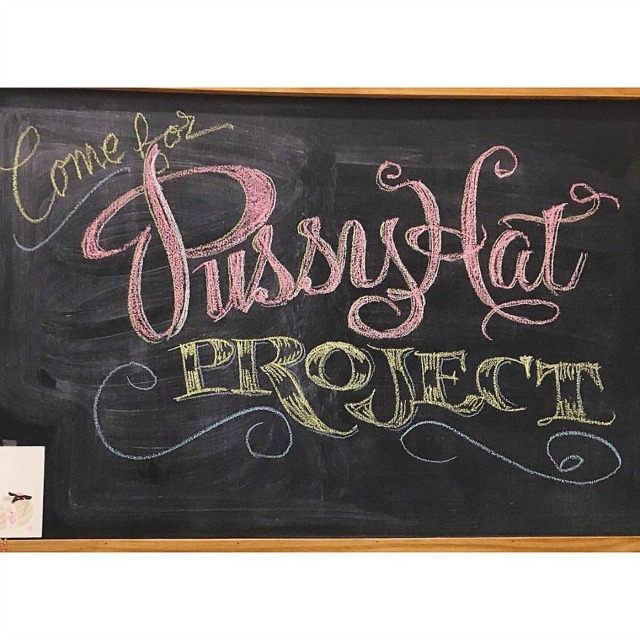 Come for
PussyHat
PROJECT